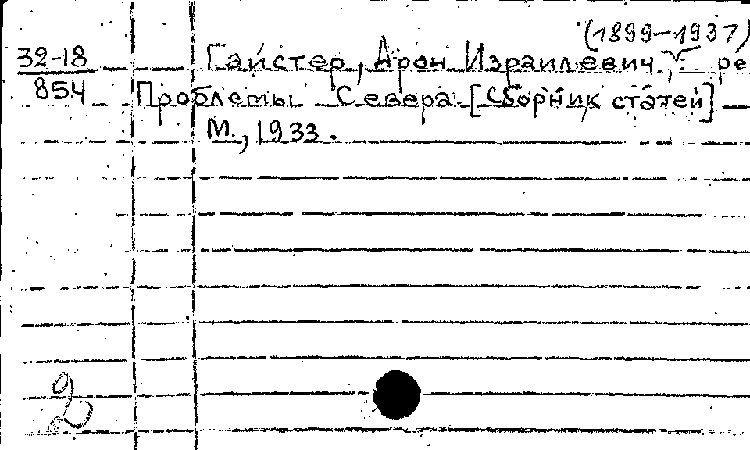 (1899-1937)
32-18 Гайстер, Арон Израилевич, ре
854 Проблемы Севера [Сборник статей]
М., 1933.
2